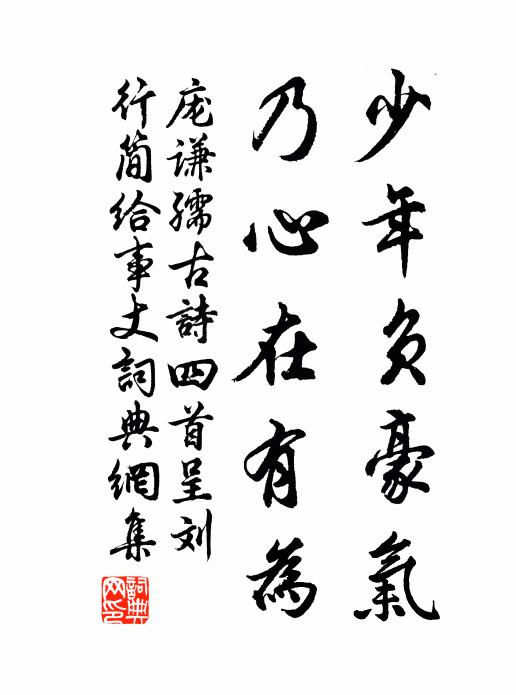 少年負豪氣
乃心在有為
庞谦孺古詩四首呈刘
行简给事丈詞典網集
詞典网印